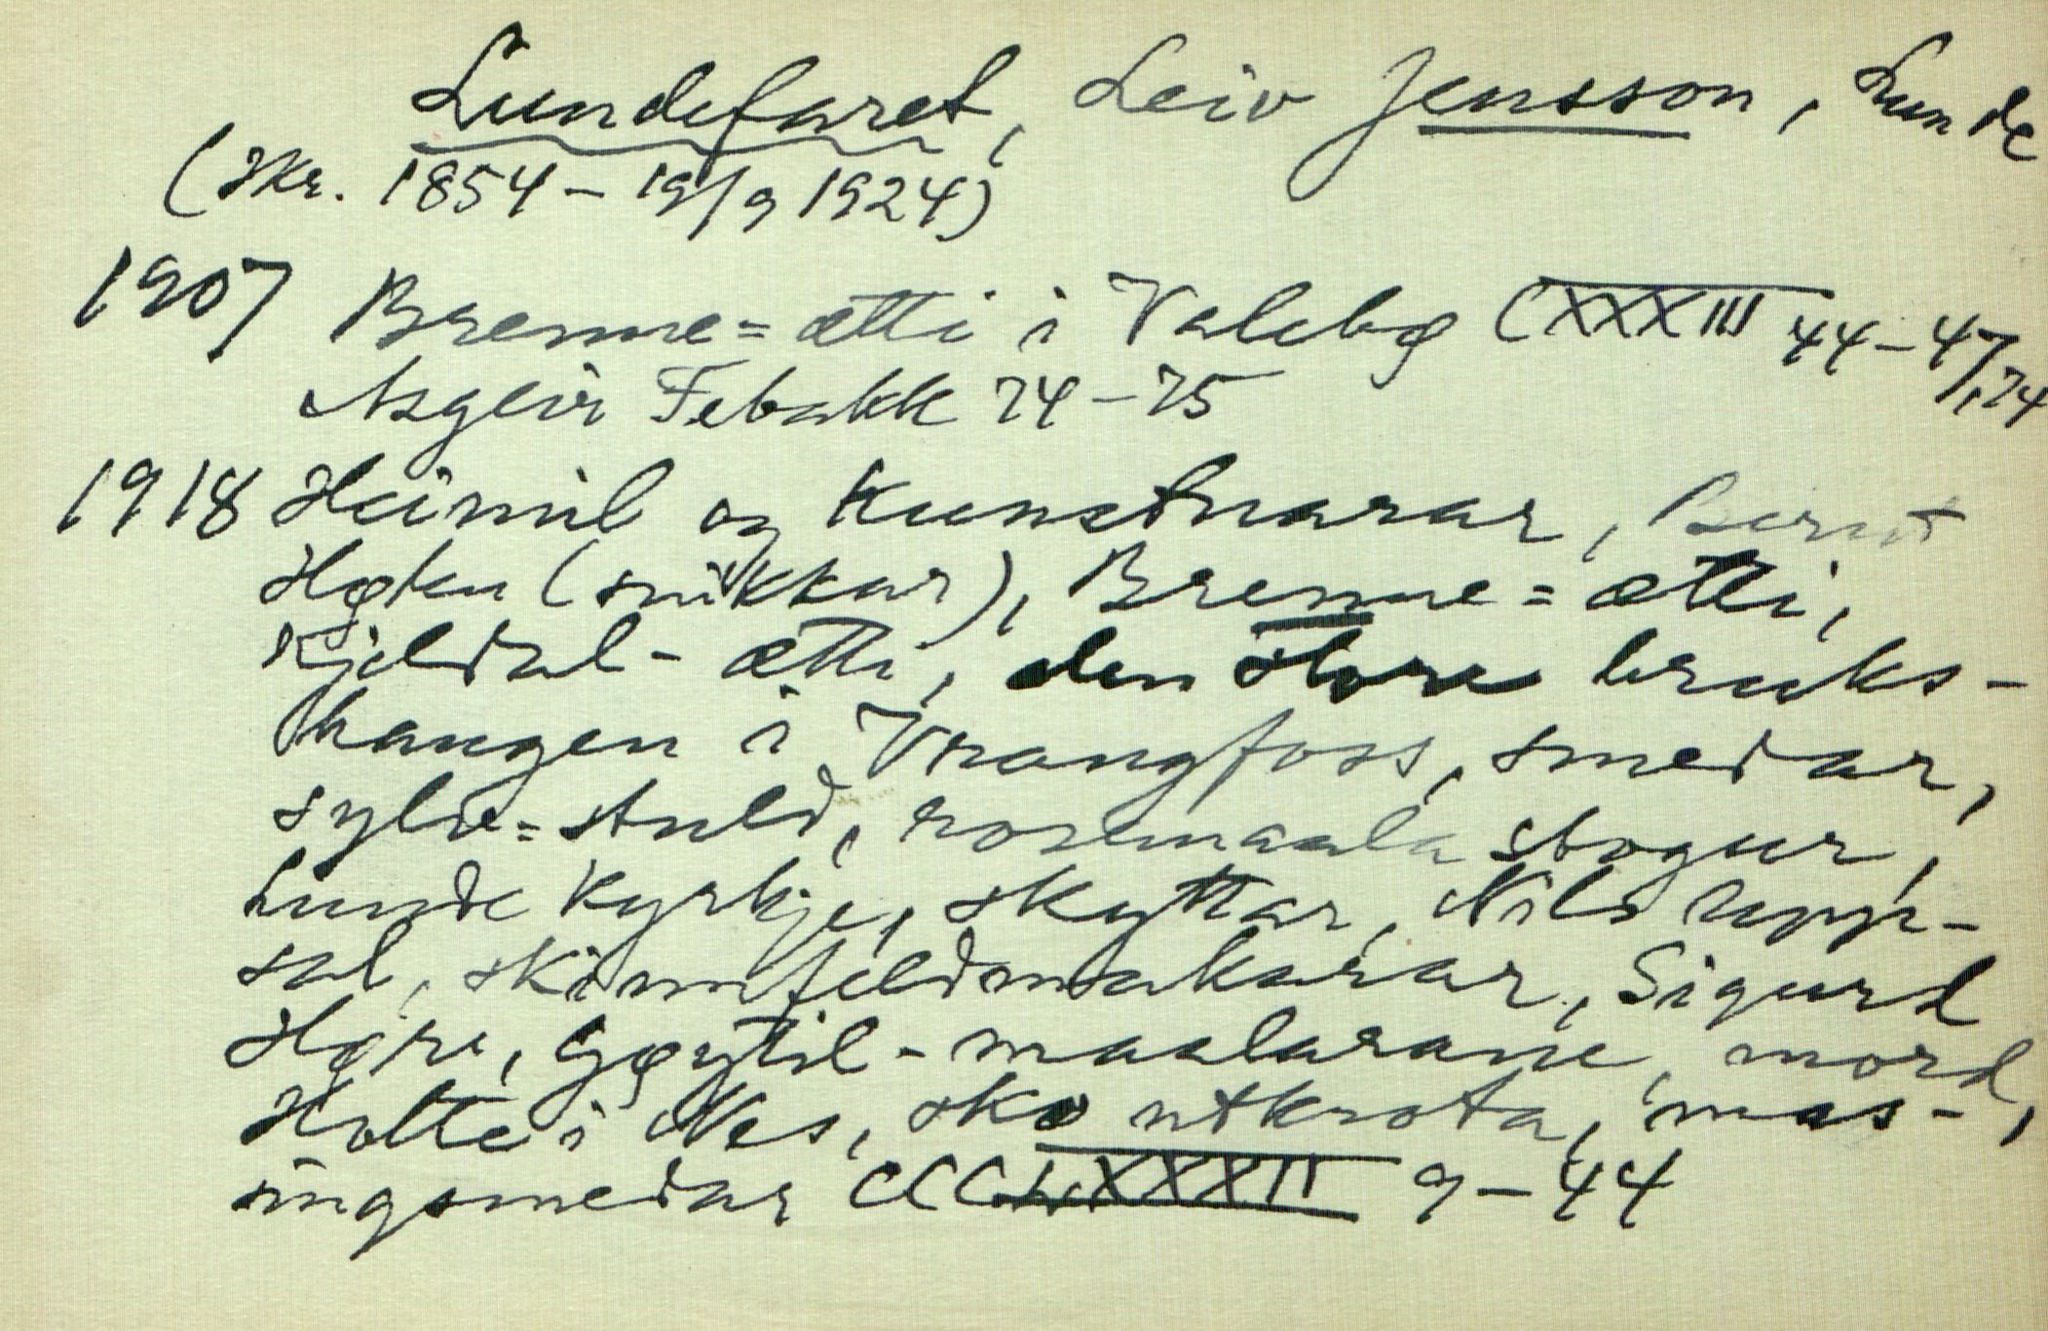 Lundefaret, Leiv Jensson, Lunde
(Skr. 1854 - 19/9 1924)
1907 Brenne=ætti i Valebø CXXXIII 44-47, 74
Asgeir Febakk 74-75
1918 Heimil og Kunstnarar, Bernt
Høten (snikkar), Brenne=ætti,
Kjeldal-ætti, den store bruks-
haugen i Vrangfoss, smedar,
sylv=stuld, rosemaala stogur,
Lunde kyrkje, skyttar, Nils Upp-
sal, skinnfeldmakarar, Sigurd
Høre, Gøytil-maalarane, mord,
Holte i Nes, sko utkrota, mes-
singsmedar XXXII 9-44